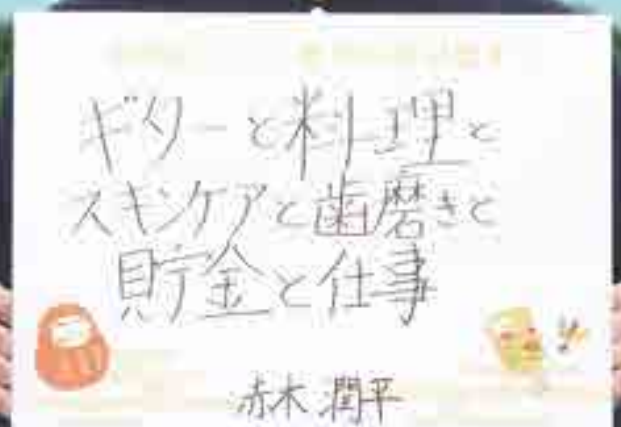 ギターと料理と
スキンケアと歯磨きと
貯金と仕事
赤木潤平